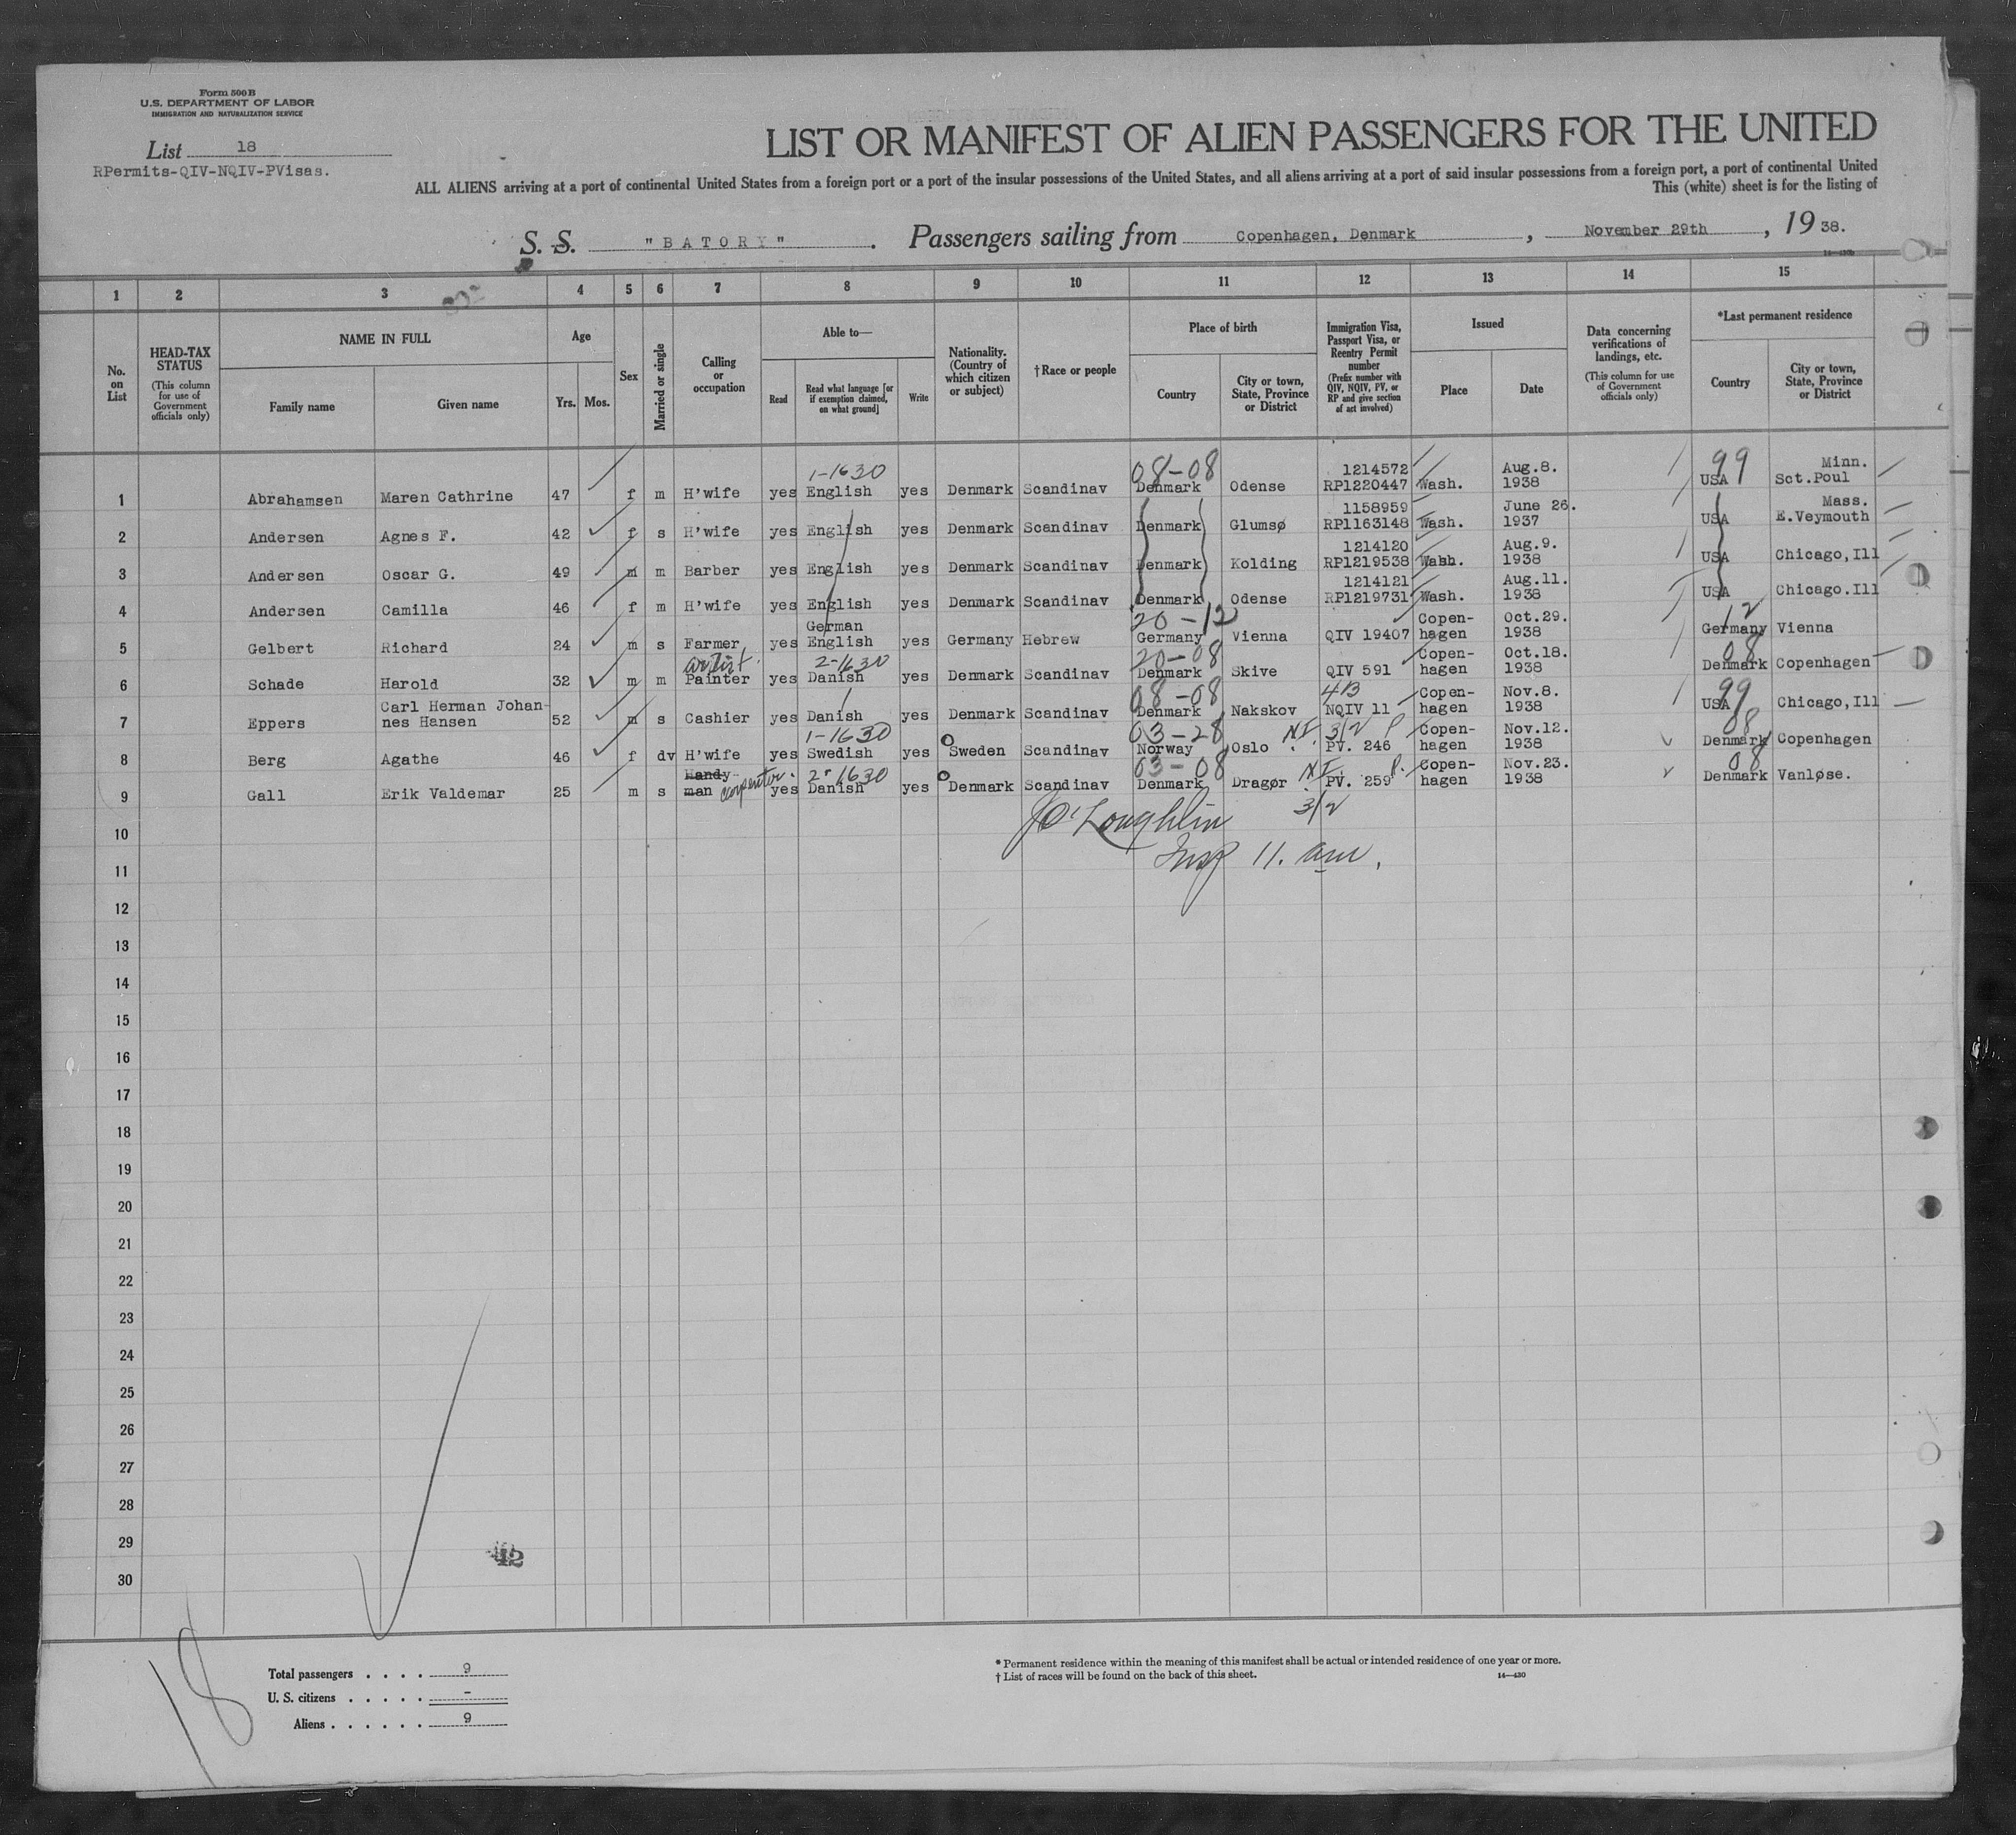 Form 500 B
U.S. DEPARTMENT OF LABOR
IMMIGRATION AND NATURALIZATION SERVICE
List 18
RPermits-QIV-NQIV-PVisas.
LIST OR MANIFEST OF ALIEN PASSENGERS FOR THE UNITED
ALL ALIENS arriving at a port of continental United States from a foreign port or a port of the insular possessions of the United States, and all aliens arriving at a port of said insular possessions from a foreign port, a port of continental United
This (white) sheet is for the listing of
S. S. "BATORY" . Passengers sailing from Copenhagen, Denmark , November 29th , 19 38.
14—430b
1 2 3 4 5 6 7 8 9 10 11 12 13 14 15
No. on List
HEAD-TAX STATUS (This column for use of Government officials only)
NAME IN FULL
Family name Given name
Age
Yrs. Mos.
Sex
Married or single
Calling or occupation
Able to—
Read Read what language [or if exemption claimed, on what ground] Write
Nationality. (Country of which citizen or subject)
†Race or people
Place of birth
Country City or town, State, Province or District
Immigration Visa, Passport Visa, or Reentry Permit number (Prefix number with QIV, NQIV, PV, or RP and give section of act involved)
Issued
Place Date
Data concerning verifications of landings, etc. (This column for use of Government officials only)
*Last permanent residence
Country City or town, State, Province or District
1-1630 08-08 1214572 Aug.8. 99 Minn.
1 Abrahamsen Maren Cathrine 47 f m H'wife yes English yes Denmark Scandinav Denmark Odense RP1220447 Wash. 1938 USA Sct.Poul
1158959 June 26. Mass.
2 Andersen Agnes F. 42 f s H'wife yes English yes Denmark Scandinav Denmark Glumsø RP1163148 Wash. 1937 USA E.Veymouth
1214120 Aug.9.
3 Andersen Oscar G. 49 m m Barber yes English yes Denmark Scandinav Denmark Kolding RP1219538 Wash. 1938 USA Chicago,Ill
1214121 Aug.11.
4 Andersen Camilla 46 f m H'wife yes English yes Denmark Scandinav Denmark Odense RP1219731 Wash. 1938 USA Chicago.Ill
German 20-12 Copen- Oct.29. 12
5 Gelbert Richard 24 m s Farmer yes English yes Germany Hebrew Germany Vienna QIV 19407 hagen 1938 Germany Vienna
artist. 2-1630 20-08 Copen- Oct.18. 08
6 Schade Harold 32 m m Painter yes Danish yes Denmark Scandinav Denmark Skive QIV 591 hagen 1938 Denmark Copenhagen
Carl Herman Johan- 08-08 4B Copen- Nov.8. 99
7 Eppers nes Hansen 52 m s Cashier yes Danish yes Denmark Scandinav Denmark Nakskov NQIV 11 hagen 1938 USA Chicago,Ill
1-1630 03-28 NI 3/2 P Copen- Nov.12. 08
8 Berg Agathe 46 f dv H'wife yes Swedish yes Sweden Scandinav Norway Oslo PV. 246 hagen 1938 Denmark Copenhagen
Handy- carpenter. 2-1630 03-08 NI P. Copen- Nov.23. 08
9 Gall Erik Valdemar 25 m s man yes Danish yes Denmark Scandinav Denmark Dragør PV. 259 hagen 1938 Denmark Vanløse.
3/2
10 J O'Loughlin
11 Insp 11. am.
12
13
14
15
16
17
18
19
20
21
22
23
24
25
26
27
28
29
30
42
18
Total passengers . . . . 9
U. S. citizens . . . . . -
Aliens . . . . . . 9
* Permanent residence within the meaning of this manifest shall be actual or intended residence of one year or more.
† List of races will be found on the back of this sheet. 14—430